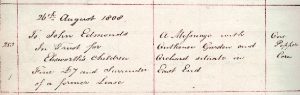 26th August 1808
253
To John Edmonds
In Trust for
Elsworth's Children
Fine £7 and Surrender
of a former Lease
A Messuage with
Outhouse Garden and
Orchard situate in
East End
One
Pepper
Corn